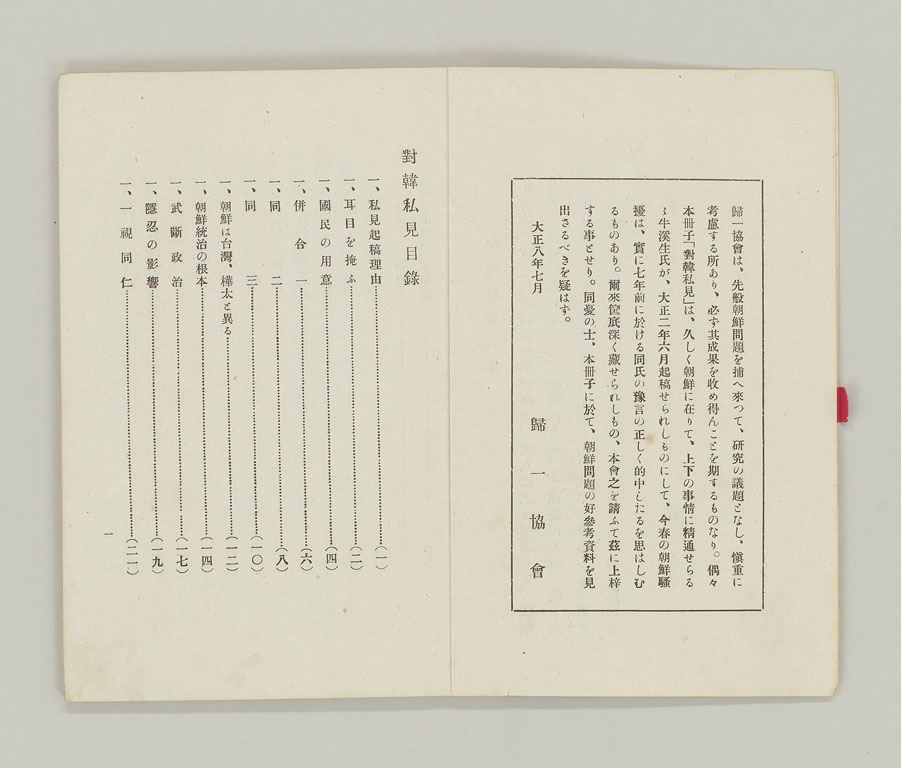 歸一協會は、先般朝鮮問題を捕へ來つて、研究の議題となし、愼重に
考慮する所あり、必ず其成果を收め得んことを期するものなり。偶々
本冊子「對韓私見」は、久しく朝鮮に在りて、上下の事情に精通せらる
ゝ牛溪生氏が、大正二年六月起稿せられしものにして、今春の朝鮮騷
擾は、實に七年前に於ける同氏の豫言の正しく的中したるを思はしむ
るものあり。爾來筐底深く藏せられしもの、本會之を請ふて茲に上梓
する事とせり。同憂の士、本冊子に於て、朝鮮問題の好參考資料を見
出さるべきを疑はず。
大正八年七月
歸一協會
對韓私見目錄
一、私見起稿理由……(一)
一、耳目を掩ふ……(二)
一、國民の用意……(四)
一、併合 一……(六)
一、同 二……(八)
一、同 三……(一〇)
一、朝鮮は台灣、樺太と異る……(一二)
一、朝鮮統治の根本……(一四)
一、武斷政治……(一七)
一、隱忍の影響……(一九)
一、一視同仁……(二一)
一